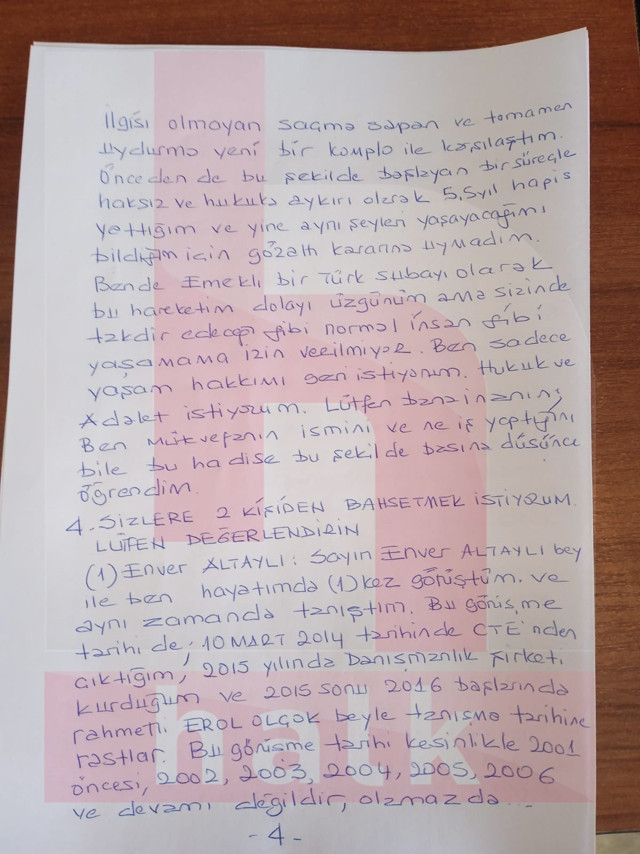 İlgisi olmayan saçma sapan ve tamamen
uydurma yeni bir komplo ile karşılaştım.
Önceden de bu şekilde başlayan bir süreçle
haksız ve hukuka aykırı olarak 5,5 yıl hapis
yattığım ve yine aynı şeyleri yaşayacağımı
bildiğim için gözaltı kararına uymadım.
Bende Emekli bir Türk subayı olarak
bu hareketim dolayı üzgünüm ama sizinde
takdir edeceği gibi normal insan gibi
yaşamama izin verilmiyor. Ben sadece
yaşam hakkımı geri istiyorum. Hukuk ve
Adalet istiyorum. Lütfen bana inanın;
Ben müteveffanın ismini ve ne iş yaptığını
bile bu hadise bu şekilde basına düşünce
öğrendim.
4. SİZLERE 2 KİŞİDEN BAHSETMEK İSTİYORUM.
LÜTFEN DEĞERLENDİRİN
(1) Enver ALTAYLI: Sayın Enver ALTAYLI bey
ile ben hayatımda (1) kez görüştüm. ve
aynı zamanda tanıştım. Bu görüşme
tarihi de; 10 MART 2014 tarihinde CTE'nden
çıktığım, 2015 yılında Danışmanlık şirketi
kurduğum ve 2015 sonu 2016 başlarında
rahmetli EROL OLÇOK beyle tanışma tarihine
rastlar. Bu görüşme tarihi kesinlikle 2001
öncesi, 2002, 2003, 2004, 2005, 2006
ve devamı değildir, olamazda...
- 4 -
h
halk